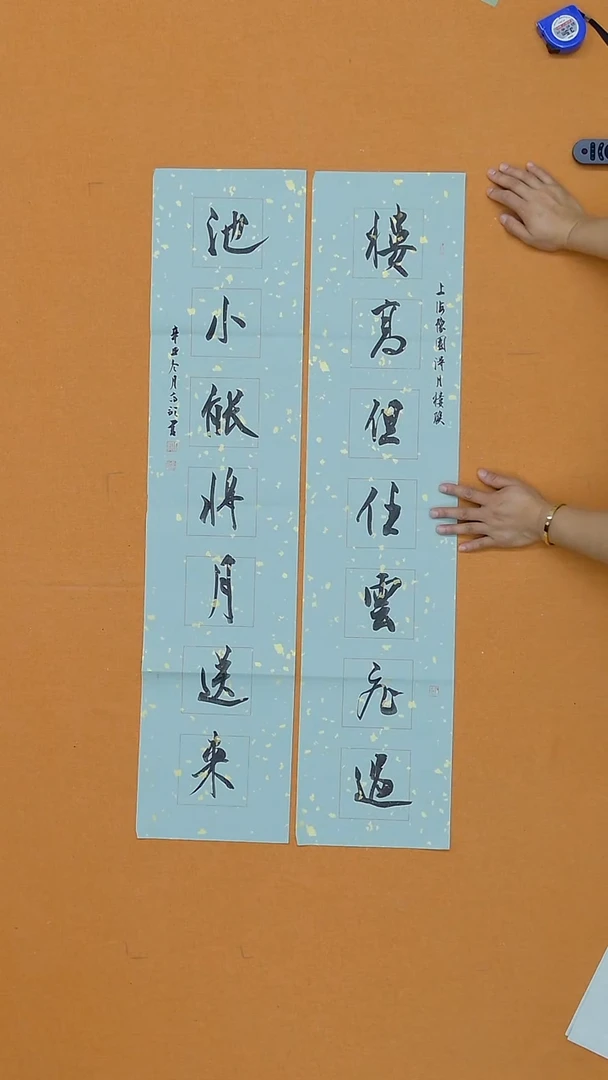 上海豫園得月樓聯
樓高但任雲飛過
池小能將月送來
辛丑冬月